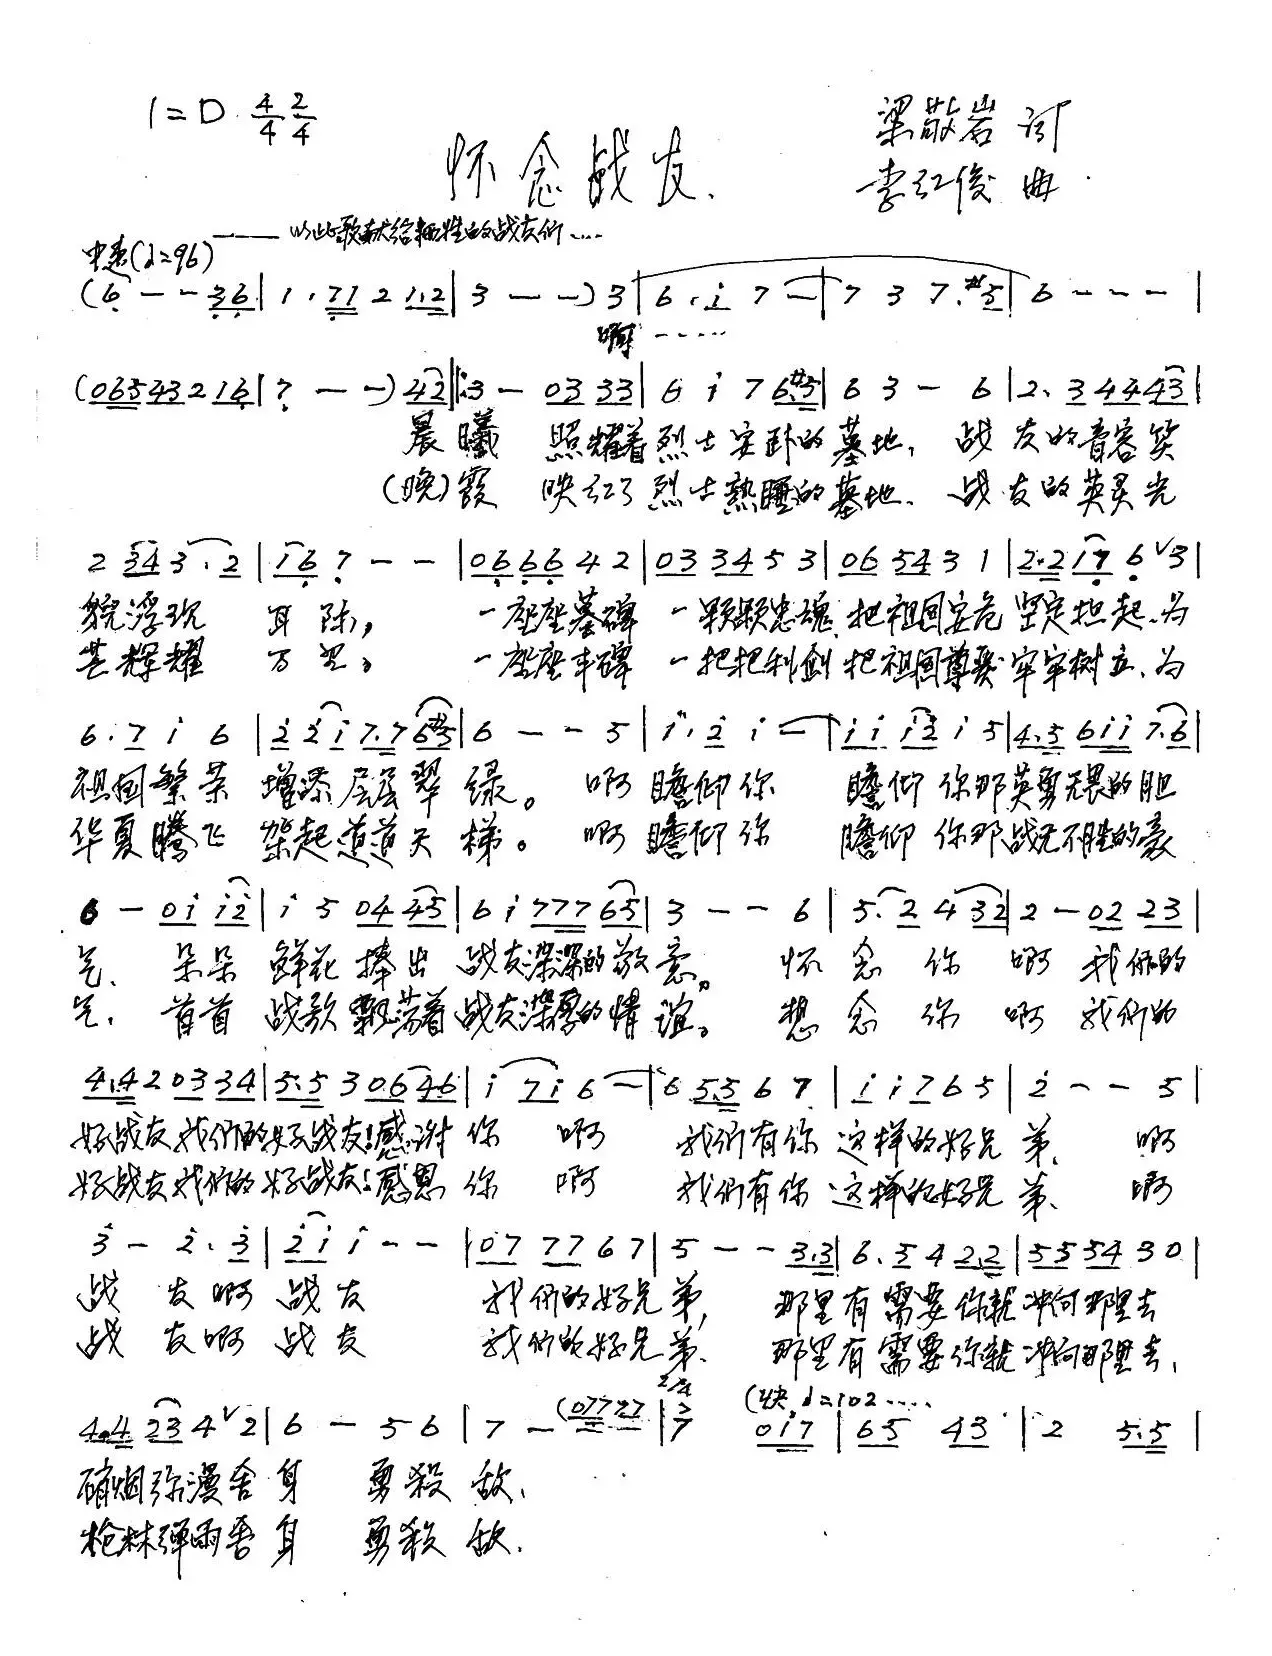 1=D 4/4 2/4
梁敬岩 词
怀念战友
李红俊 曲
——以此歌献给牺牲的战友们....
中速(♩=96)
(6 — — 36 | 1 . 71 2 1.2 | 3 — —) 3 | 6 . i 7 — | 7 3 7.#5 | 6 — — — |
啊 ......
(0654321 6 | 7 — —) 42 |: 3 — 03 33 | 6 i 7 6.#5 | 6 3 — 6 | 2. 3 44 43 |
晨曦 照耀着烈士安卧的墓地, 战友的音容笑
(晚)霞 映红了烈士熟睡的墓地. 战友的英灵光
2 34 3 . 2 | i6 7 — — | 06 66 4 2 | 03 34 5 3 | 06 54 3 1 | 2.2 17 6 ∨3 |
貌浮现 耳际, 一座座墓碑 一颗颗忠魂 把祖国安危 坚定担起、为
芒辉耀 万里。 一座座丰碑 一把把利剑 把祖国尊严 牢牢树立、为
6 . 7 i 6 | 2 2 i 7.7 6#5 | 6 — — 5 | i . 2 i — | i i i2 i 5 | 4.5 6ii 7.6 |
祖国繁荣 增添层层翠绿。 啊瞻仰你 瞻仰你那英勇无畏的胆
华夏腾飞 架起道道天梯。 啊瞻仰你 瞻仰你那战无不胜的豪
6 — 0i i2 | i 5 04 45 | 6 i 777 65 | 3 — — 6 | 5. 2 4 32 | 2 — 02 23 |
气、 朵朵 鲜花捧出 战友深深的敬意。 怀念你 啊 我们的
气, 首首 战歌飘荡着战友深厚的情谊。 想念你 啊 我们的
4.4 2 03 34 | 5.5 3 06 46 | i 7i 6 — | 6 5.5 6 7 | i i 7 6 5 | 2 — — 5 |
好战友我们的好战友!感谢你 啊 我们有你这样的好兄弟、 啊
好战友我们的好战友!感恩你 啊 我们有你这样的好兄弟、 啊
3 — 2 . 3 | 2 i i — — | 07 77 6 7 | 5 — — 3.3 | 6. 5 4 2.2 | 55 54 3 0 |
战友啊战友 我们的好兄弟, 那里有需要你就冲向那里去
战友啊战友 我们的好兄弟、 那里有需要你就冲向那里去,
2/4 (快 ♩=102 ....
4.4 23 4∨2 | 6 — 5 6 | 7 — (0777 | 7 0i7 | 65 43 | 2 5.5 |
硝烟弥漫舍身 勇殺敌、
枪林弹雨舍身 勇殺敌.